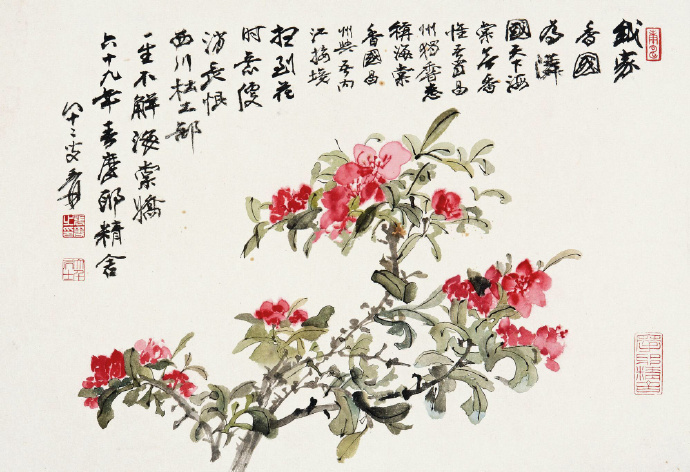 我家
香國
為鄰
國天下海
棠無香
惟吾蜀昌
州獨香志
稱海棠
香國昌
州與吾內
江接境
到花
時意便
消長恨
西川杜工部
一生不解海棠嬌
六十九年春摩耶精舍
八十二叟爰